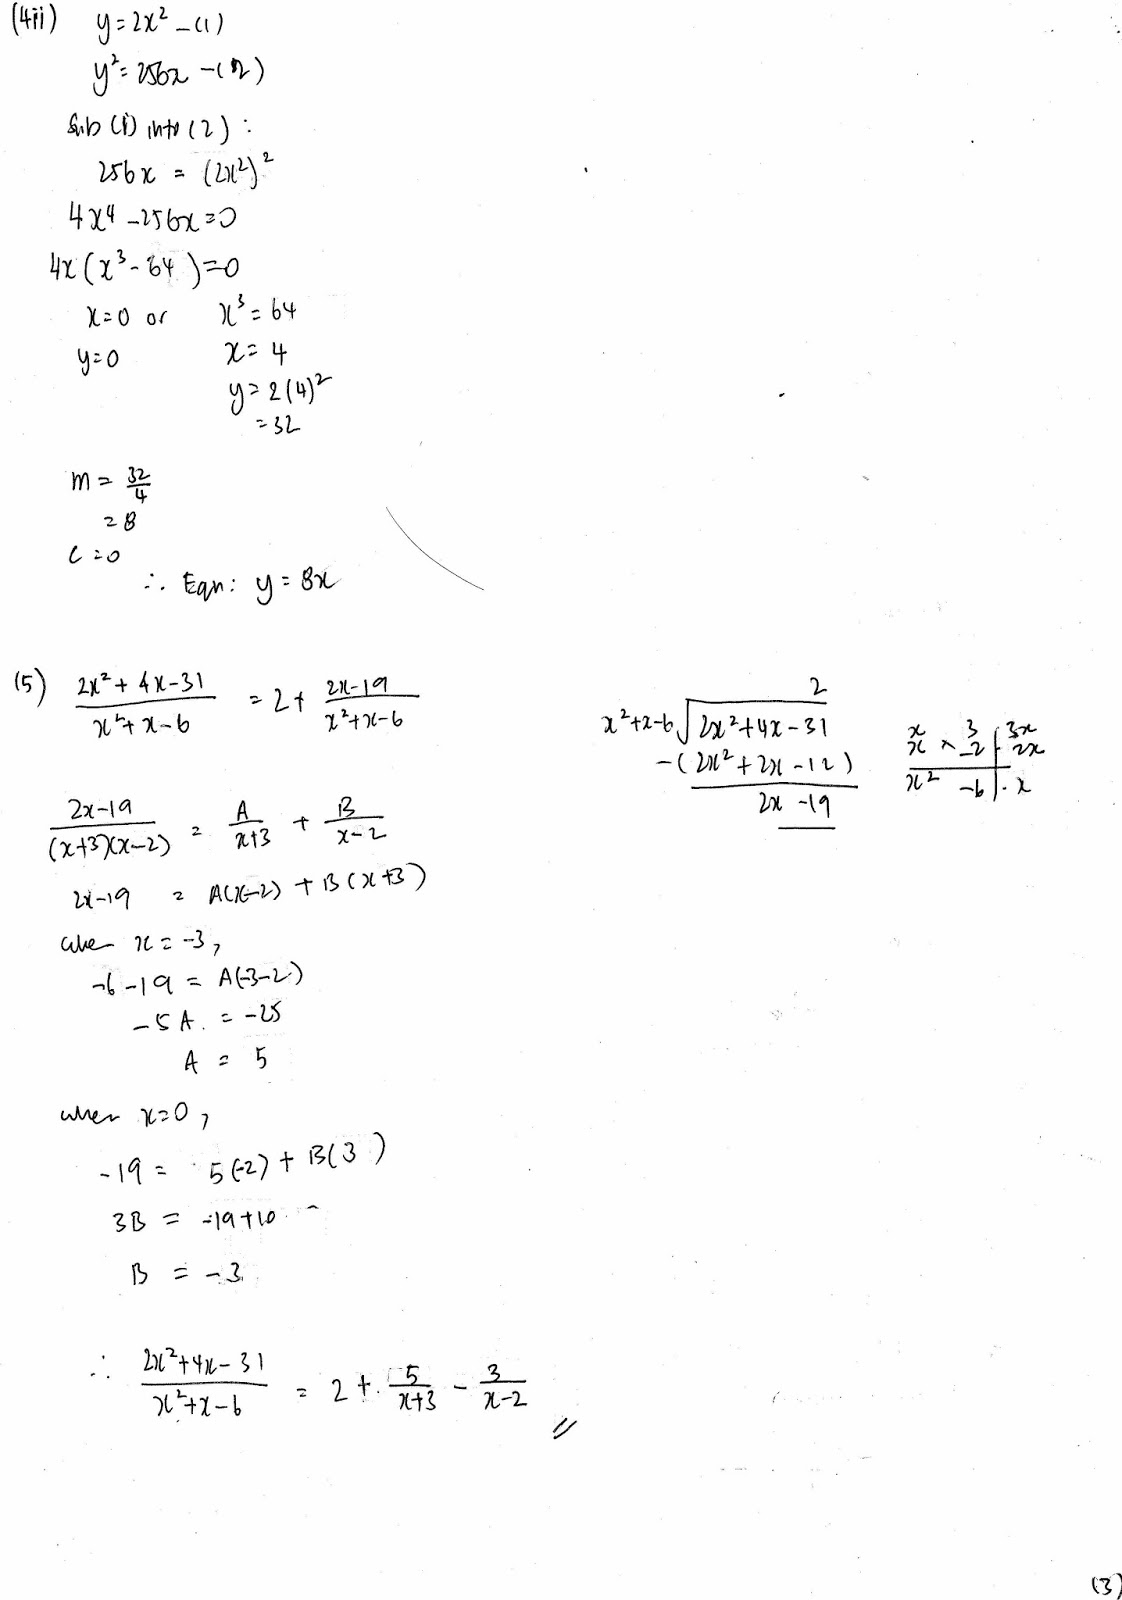 (4ii) y = 2x² —(1)
y² = 256x —(2)
Sub (1) into (2) :
256x = (2x²)²
4x⁴ - 256x = 0
4x(x³ - 64) = 0
x = 0 or x³ = 64
y = 0 x = 4
y = 2(4)²
= 32
m = 32/4
= 8
c = 0
∴ Eqn: y = 8x
(5) (2x² + 4x - 31)/(x² + x - 6) = 2 + (2x - 19)/(x² + x - 6)
2
x² + x - 6 √ 2x² + 4x - 31
-(2x² + 2x - 12)
2x - 19
x 3 | 3x
x × -2 | - 2x
x² -6 | x
(2x - 19)/((x+3)(x-2)) = A/(x+3) + B/(x-2)
2x - 19 = A(x-2) + B(x+3)
when x = -3,
-6 - 19 = A(-3-2)
-5A = -25
A = 5
when x = 0,
-19 = 5(-2) + B(3)
3B = -19 + 10
B = -3
∴ (2x² + 4x - 31)/(x² + x - 6) = 2 + 5/(x+3) - 3/(x-2) //
(3)